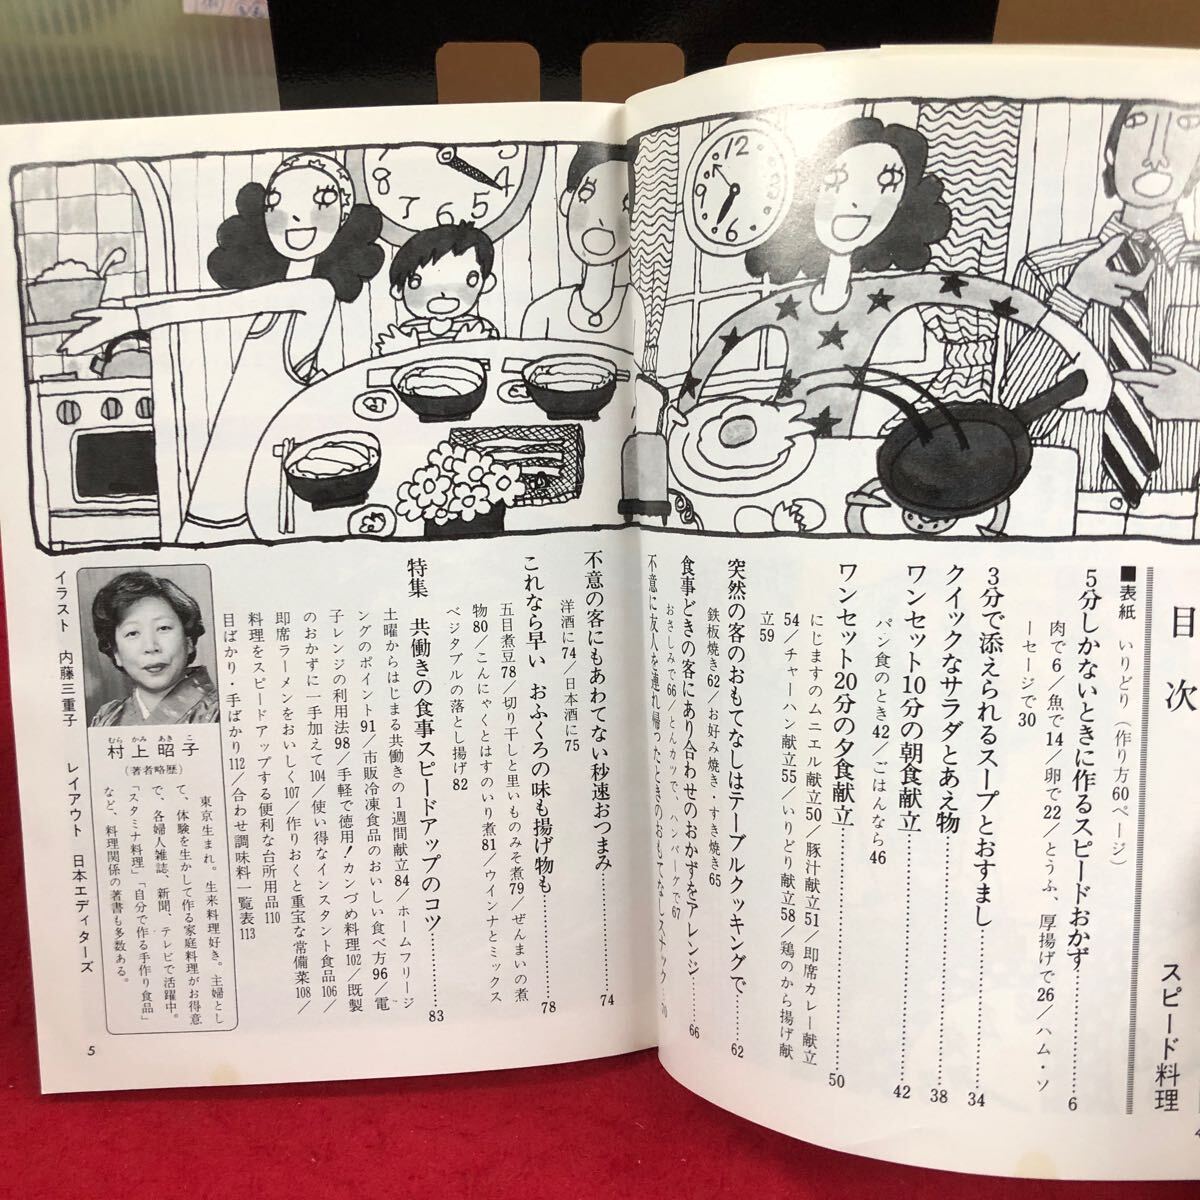 目次
スピード料理
■表紙 いりどり（作り方60ページ）
5分しかないときに作るスピードおかず……6
肉で6／魚で14／卵で22／とうふ、厚揚げで26／ハム・ソ
ーセージで30
3分で添えられるスープとおすまし……34
クイックなサラダとあえ物……38
ワンセット10分の朝食献立……42
パン食のとき42／ごはんなら46
ワンセット20分の夕食献立……50
にじますのムニエル献立50／豚汁献立51／即席カレー献立
54／チャーハン献立55／いりどり献立58／鶏のから揚げ献
立59
突然の客のおもてなしはテーブルクッキングで……62
鉄板焼き62／お好み焼き・すき焼き65
食事どきの客にあり合わせのおかずをアレンジ……66
おさしみで66／とんカツで、ハンバーグで67
不意に友人を連れ帰ったときのおもてなしスナック
4
不意の客にもあわてない秒速おつまみ……74
洋酒に74／日本酒に75
これなら早い おふくろの味も揚げ物も……78
五目煮豆78／切り干しと里いものみそ煮79／ぜんまいの煮
物80／こんにゃくとはすのいり煮81／ウインナとミックス
ベジタブルの落とし揚げ82
特集 共働きの食事スピードアップのコツ……83
土曜からはじまる共働きの1週間献立84／ホームフリージ
ングのポイント91／市販冷凍食品のおいしい食べ方96／電
子レンジの利用法98／手軽で徳用！カンづめ料理102／既製
のおかずに一手加えて104／使い得なインスタント食品106／
即席ラーメンをおいしく107／作りおくと重宝な常備菜108／
料理をスピードアップする便利な台所用品110
目ばかり・手ばかり112／合わせ調味料一覧表113
村上昭子
むら かみ あき こ
（著者略歴）
東京生まれ。生来料理好き。主婦とし
て、体験を生かして作る家庭料理がお得意
で、各婦人雑誌、新聞、テレビで活躍中。
「スタミナ料理」「自分で作る手作り食品」
など、料理関係の著書も多数ある。
イラスト 内藤三重子 レイアウト 日本エディターズ
5
8
7
6
5
4
12
6